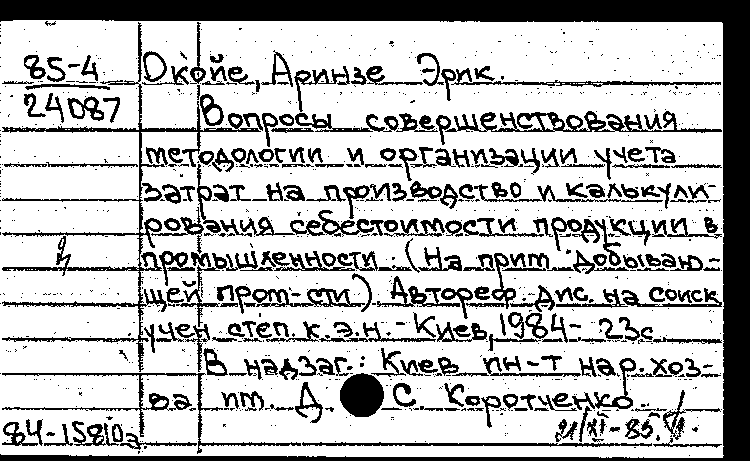 85-4 Окойе, Аринзе Эрик.
24087 Вопросы совершенствования
методологии и организации учета
затрат на производство и калькули-
рования себестоимости продукции в
промышленности. (На прим добываю-
щей пром-сти). Автореф. дис. на соиск
учен степ. к.э.н. - Киев, 1984 - 23с
В надзаг.: Киев ин-т нар. хоз-
ва им. Д. С. Коротченко.
84-15810а